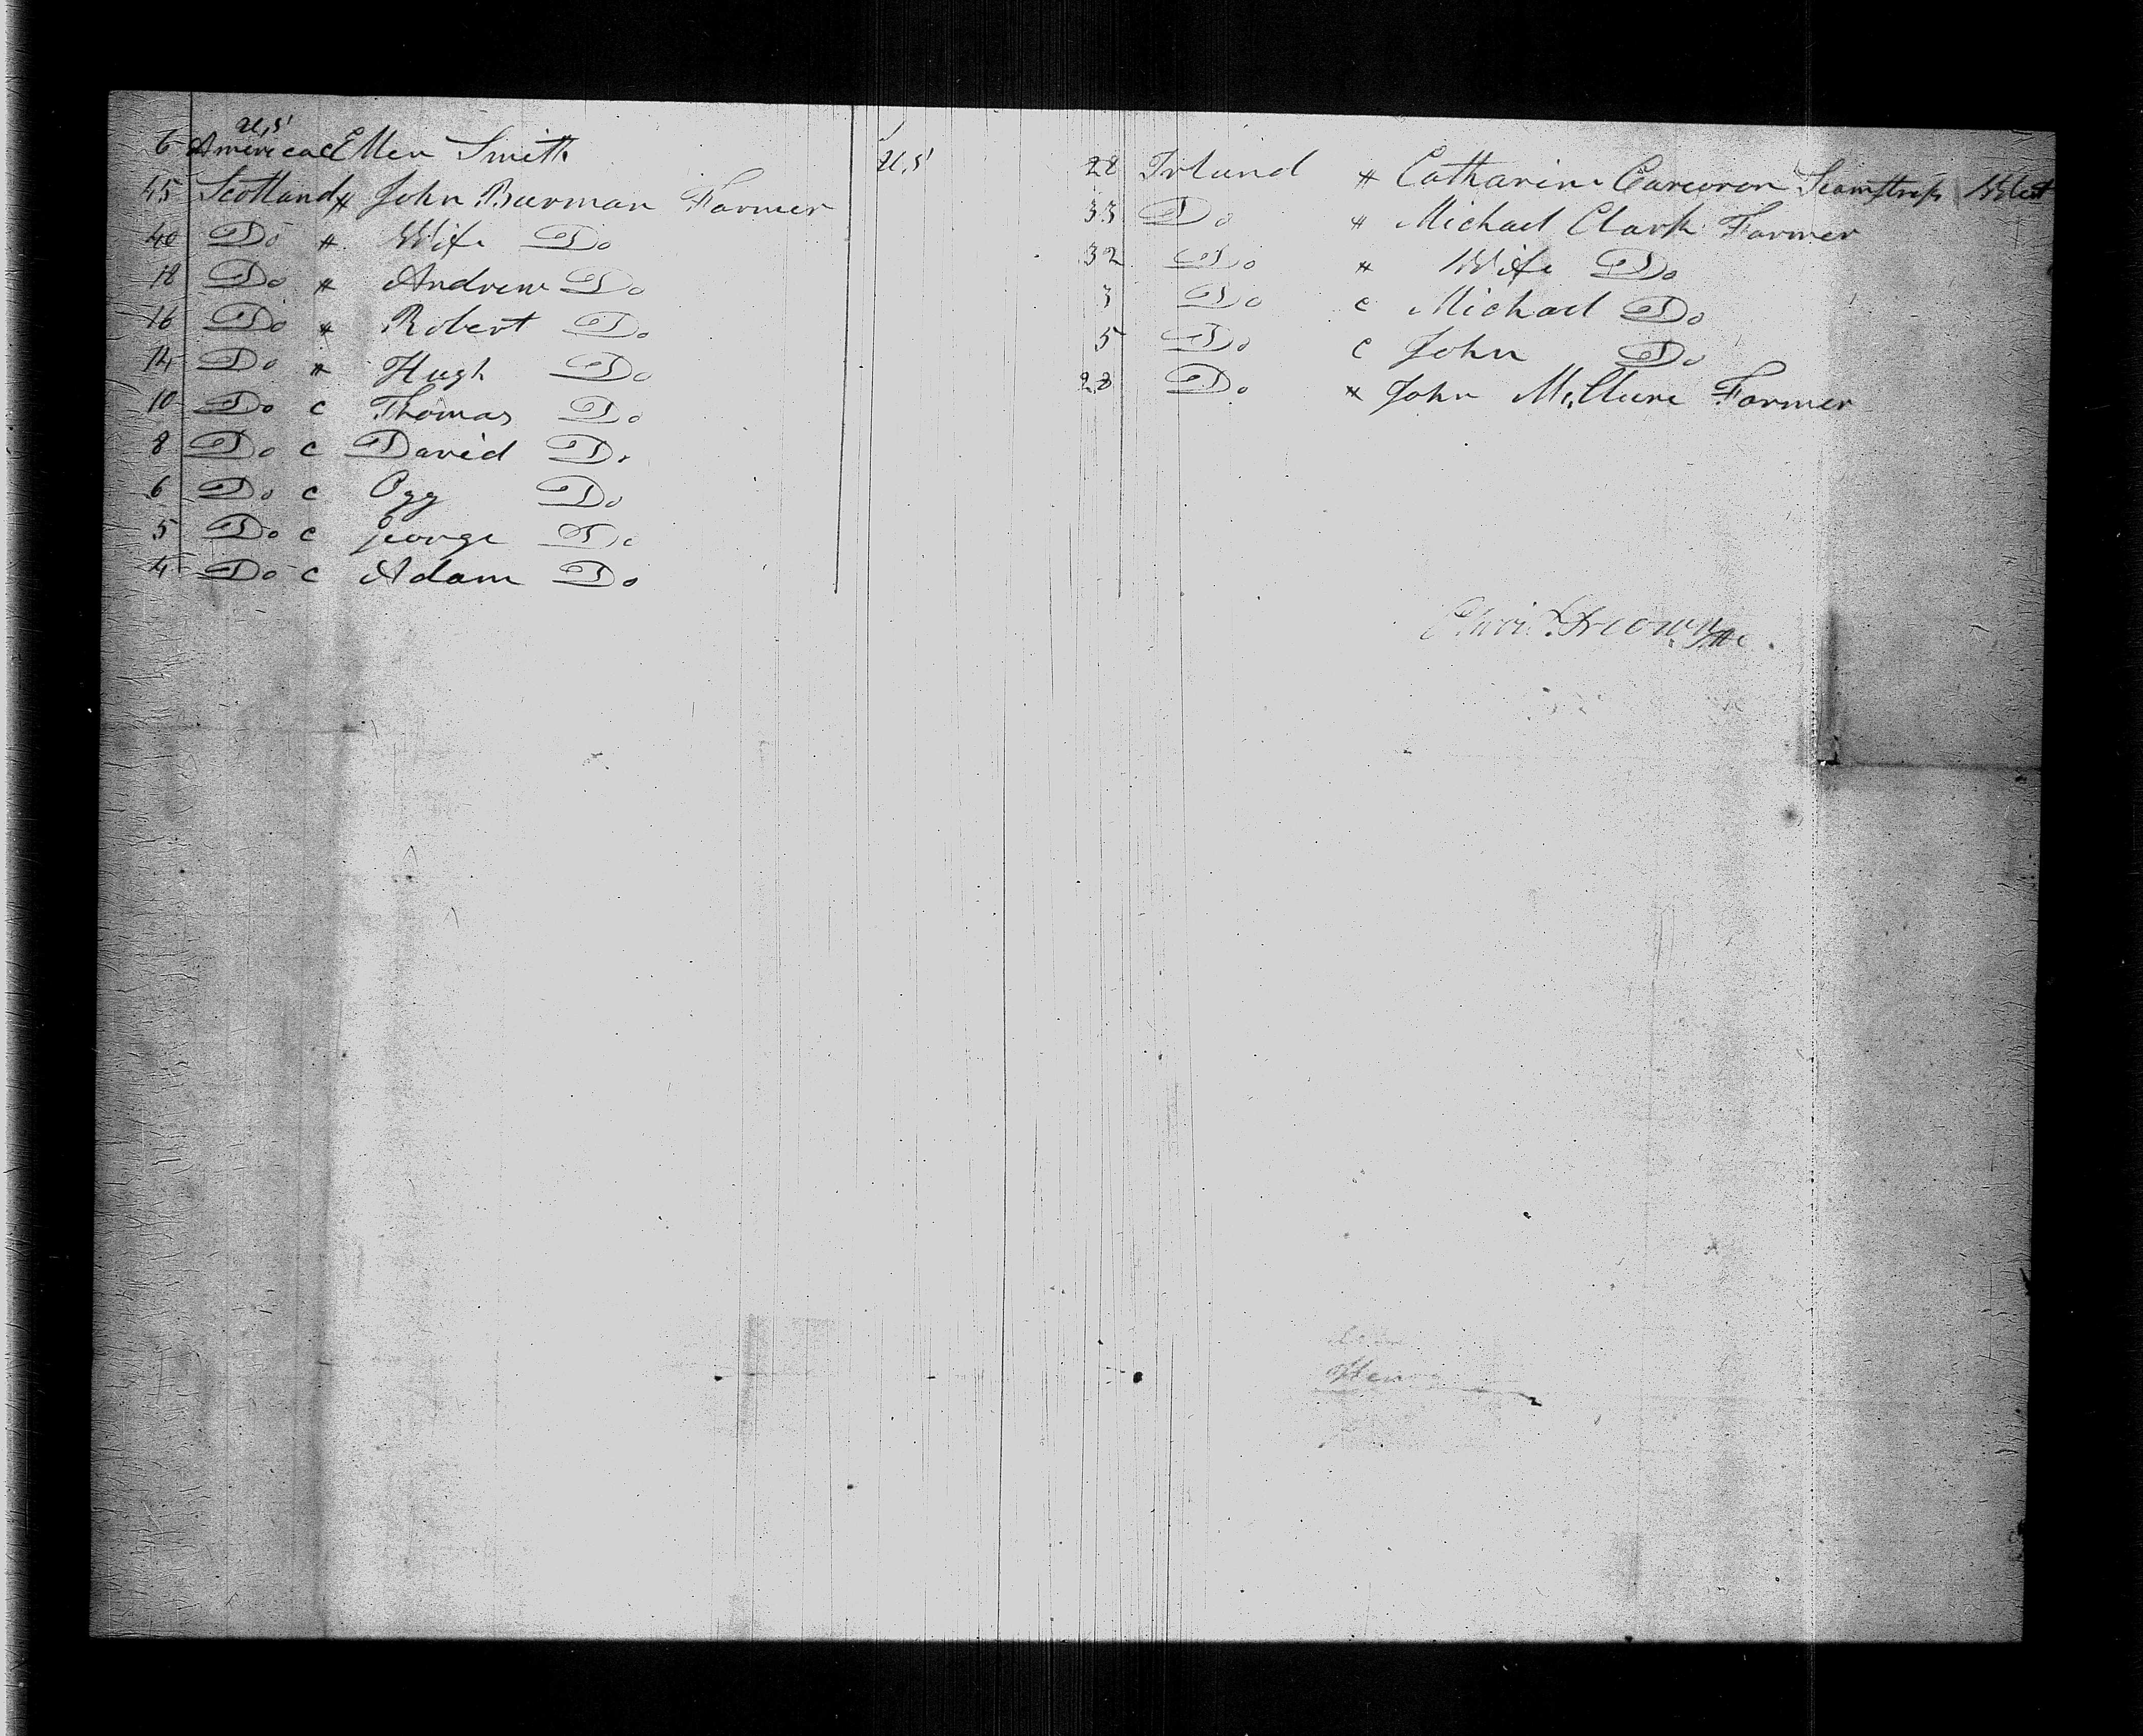 U,S'
6 America c Ellen Smith
45 Scotland * John Burman Farmer
40 Do * Wife Do
18 Do * Andrew Do
16 Do * Robert Do
14 Do * Hugh Do
10 Do c Thomas Do
8 Do c David Do
6 Do c Ogg Do
5 Do c George Do
4 Do c Adam Do
U,S'
28 Irland * Catharine Carcoron Seamstress
33 Do * Michael Clark Farmer
32 Do * Wife Do
3 Do c Michael Do
5 Do c John Do
28 Do * John McClure Farmer